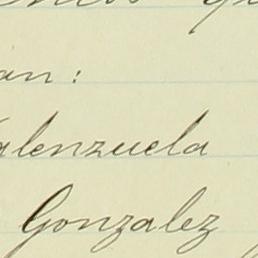 an :
alenzuela
Gonzalez